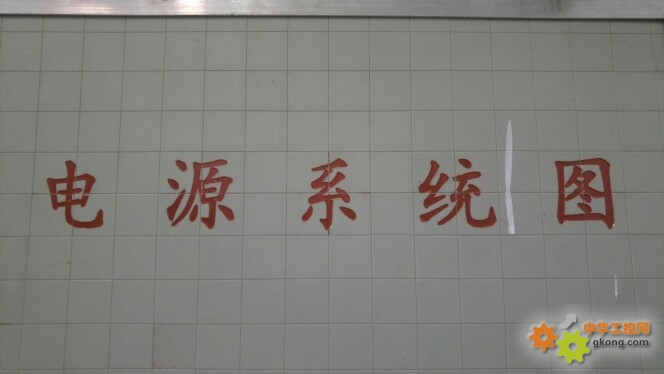 电源系统图
中华工控网
gkong.com